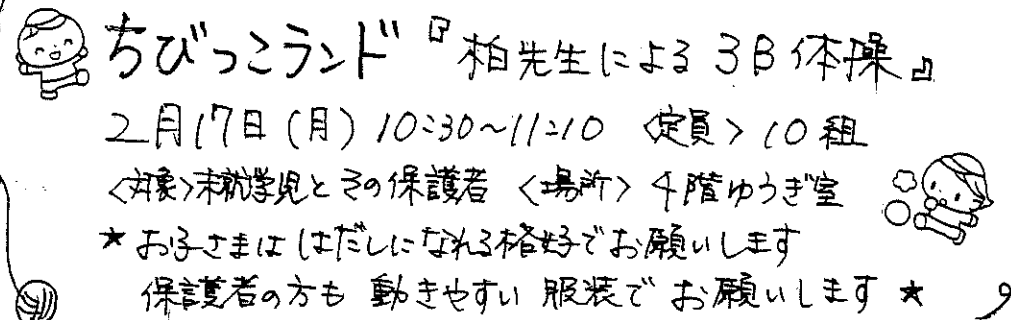 ちびっこランド『柏先生による3B体操』
2月17日(月) 10:30～11:10 〈定員〉10組
〈対象〉未就学児とその保護者 〈場所〉4階ゆうぎ室
★お子さまははだしになれる格好でお願いします
保護者の方も動きやすい服装でお願いします★